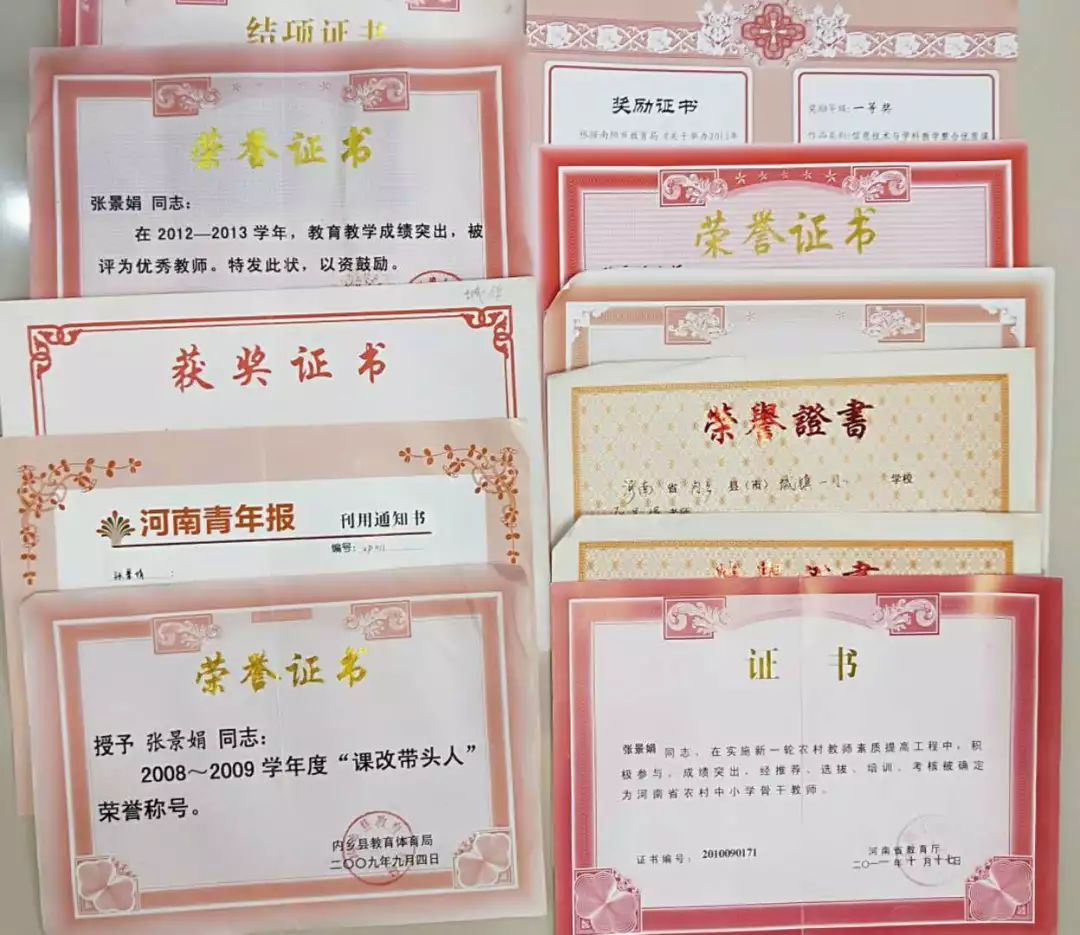 结项证书
荣誉证书
张景娟 同志：
在 2012—2013 学年，教育教学成绩突出，被
评为优秀教师。特发此状，以资鼓励。
获奖证书
河南青年报 刊用通知书
编号：
张景娟 ：
荣誉证书
授予 张景娟 同志：
2008～2009 学年度“课改带头人”
荣誉称号。
内乡县教育体育局
二〇〇九年九月四日
奖励证书
根据南阳市教育局《关于举办2013年
奖励等级：一等奖
作品系列：信息技术与学科教学整合优质课
荣誉证书
榮譽證書
河南 省 内乡 县（市） 城镇一小 学校
证 书
张景娟 同志，在实施新一轮农村教师素质提高工程中，积
极参与，成绩突出，经推荐、选拔、培训、考核被确定
为河南省农村中小学骨干教师。
证书编号：2010090171
河南省教育厅
二〇一一年十月十七日